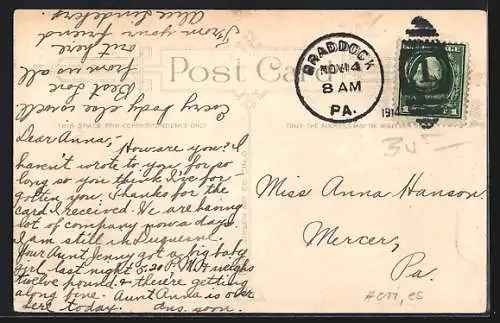 Post Card
THIS SPACE FOR CORRESPONDENCE
BRADDOCK
NOV 14
8 AM
PA.
1914
1
Dear Anna,-
How are you? I
haven't wrote to you for so
long so you think I've for
gotten you. Thanks for the
card I received. We are having
lot of company now a days.
I am still in Duquesne.
Your Aunt Jenny got a big baby
girl last night 5.20 P.M. It weighs
twelve pound. & there getting
along fine. Aunt Anna is over
here today. ans. soon.
Every body else is well.
Best Love
from us all
out here
From your friend
Miss Anna Hanson.
Mercer,
Pa.